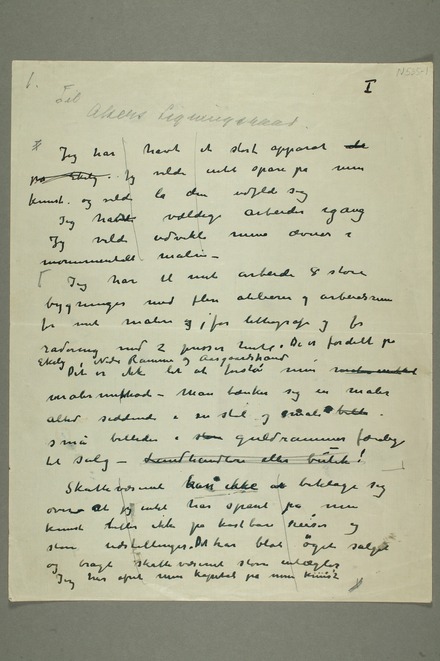 1.
I
N525-1
Til
Akers Ligningsraad.
Jeg har havt et stort apparat
på Ekely. Jeg vilde intet spare på min
kunst og vilde la den udfylde sig
Jeg havde vældige arbeider igang
Jeg vilde udvikle mine ævner i
monumentalt maleri –
Jeg har til mit arbeide 8 store
bygninger med flere atelierer og arbeidsrum
for mit maleri og for lithografi og for
radering med 2 presser. De er fordelt på
Ekely, Nedre Ramme og Aasgaardstrand
Det er ikke let at forstå min
malermethode – Man tænker sig en maler
altid siddende i en stol og
små billeder i guldrammer færdig
til salg – kunsthandler eller butik!
Skattevæsenet kan ikke beklage sig
over at jeg intet har spart på min
kunst heller ikke på kostbare reiser og
store udstillinger. Det har blot øget salget
og bragt skattevæsenet store indtægter
Jeg har ofret min kapital på min kunst